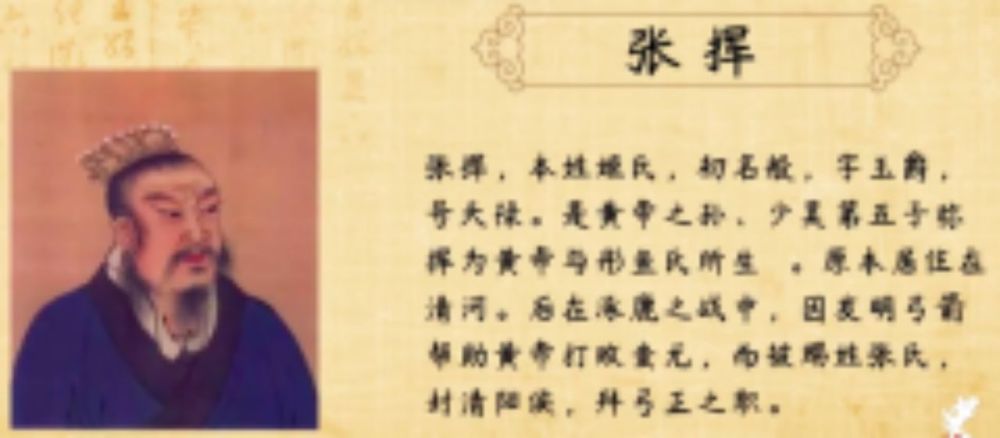 张挥
张挥，本姓姬氏，初名般，字玉爵，
号天禄。是黄帝之孙、少昊第五子称
挥为黄帝与彤鱼氏所生 。原本居住在
清河。后在涿鹿之战中，因发明弓箭
帮助黄帝打败蚩尤，而被赐姓张氏，
封清阳侯，拜弓正之职。